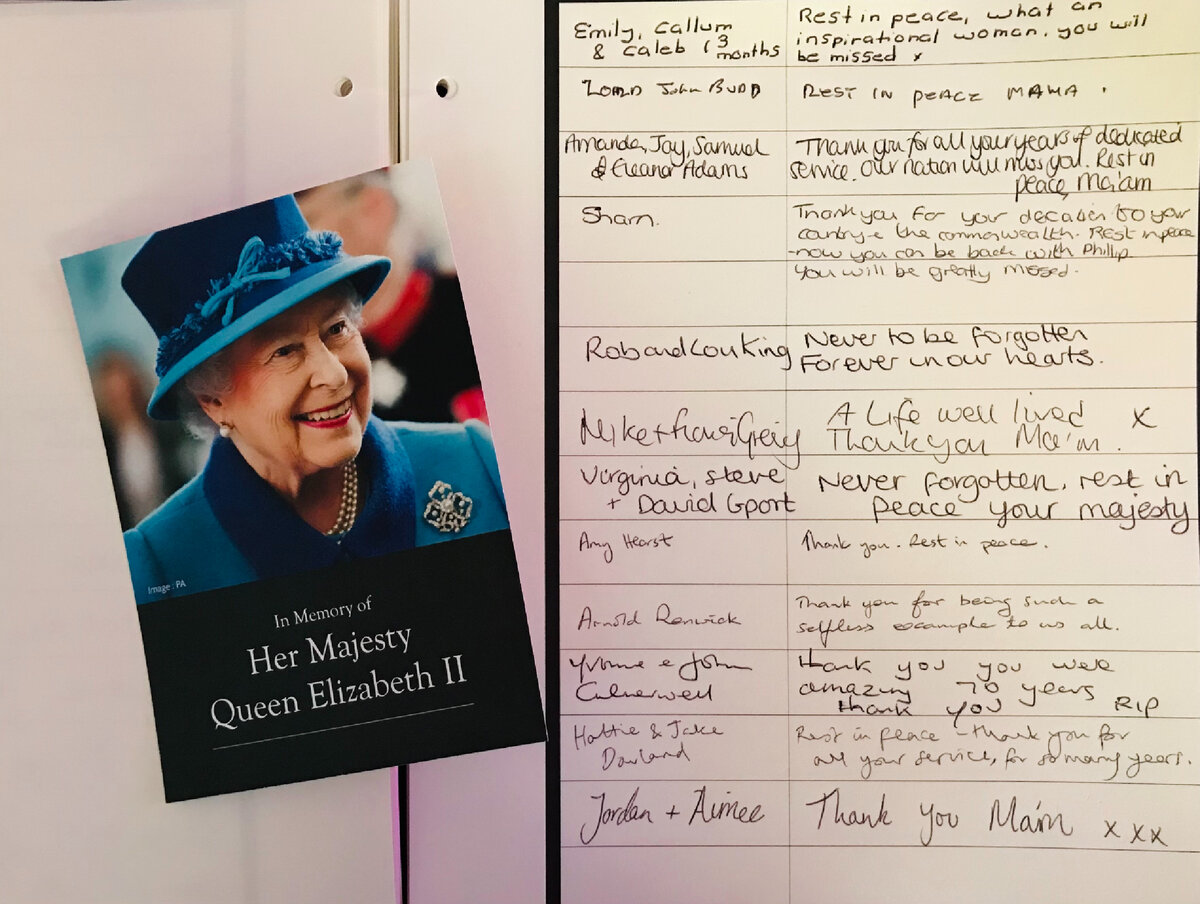 Image : PA
In Memory of
Her Majesty
Queen Elizabeth II
Emily, Callum
& Caleb (3
months
Rest in peace, what an
inspirational woman. you will
be missed x
John Budd
REST IN PEACE MAMA .
Amanda, Jay, Samuel
& Eleanor Adams
Thank you for all your years of dedicated
service. Our nation will miss you. Rest in
peace, Ma'am
Sharn.
Thank you for your to your
country & the commonwealth. Rest in peace
-now you can be back with Phillip.
you will be greatly missed.
Rob and Lou King
Never to be forgotten
Forever in our hearts.
Mike +
A Life well lived x
Thank you Ma'm.
Virginia, Steve
+ David Gport
Never forgotten, rest in
peace your majesty
Amy Hearst
Thank you. Rest in peace.
Arnold Renwick
Thank you for being such a
selfless example to us all.
Yvonne & John
Thank you you were
amazing 70 years
thank you RIP
Hattie & Jake
Dowland
Rest in peace - thank you for
all your service, for so many years.
Jordan + Aimee
Thank you Ma'm xxx